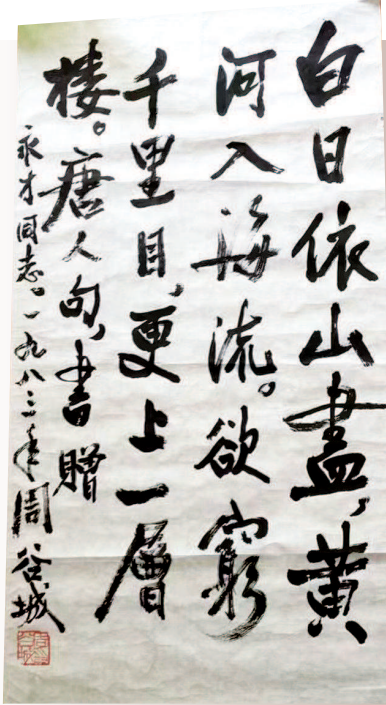 白日依山盡，黄
河入海流。欲窮
千里目，更上一層
楼。唐人句，書贈
永才同志。一九八三年周谷城